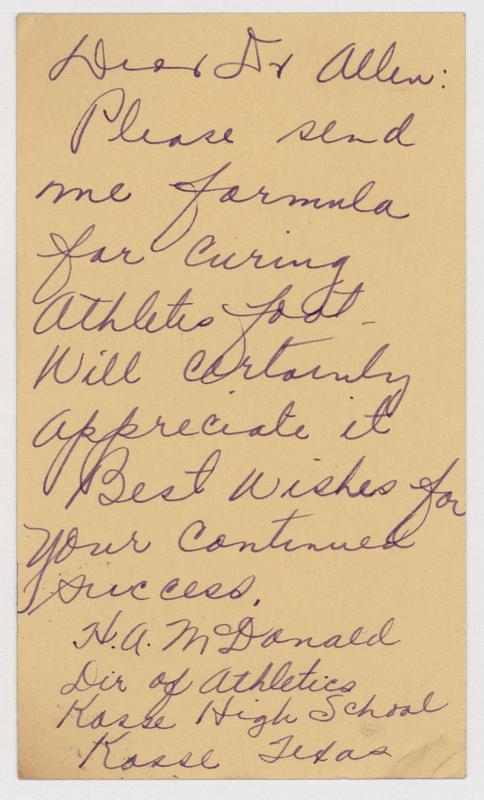 Dear Dr Allen:
Please send
me formula
for curing
Athletes foot.
Will certainly
appreciate it
Best Wishes for
your continued
success.
H.A. McDonald
Dir of Athletics
Kosse High School
Kosse Texas